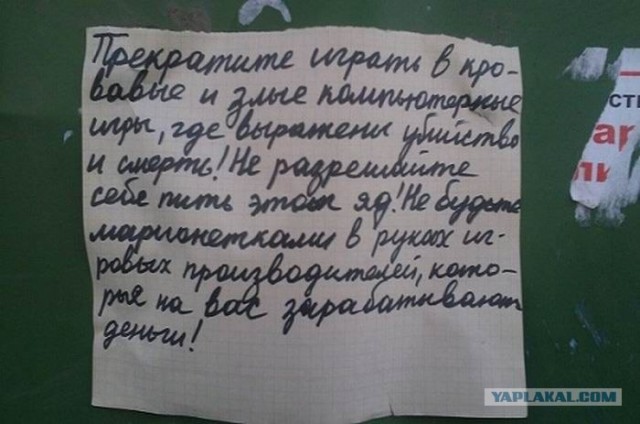 Прекратите играть в кро-
вавые и злые компьютерные
игры, где выражены убийство
и смерть! Не разрешайте
себе пить этот яд! Не будьте
марионетками в руках иг-
ровых производителей, кото-
рые на вас зарабатывают
деньги!
СТИ
ар
ли
YAPLAKAL.COM